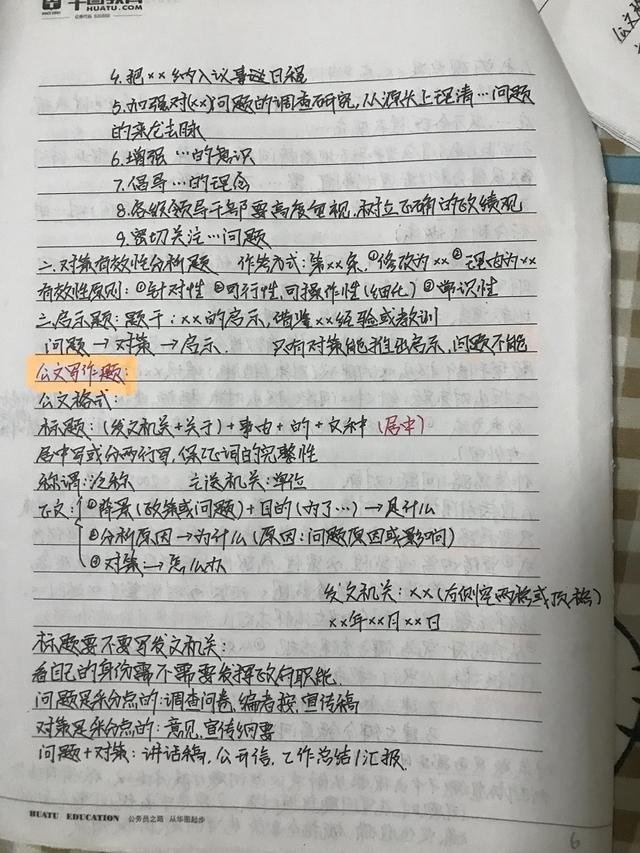 华图教育
HUATU.COM
4.把××纳入议事议日程
5.加强对(××)问题的调查研究,从源头上理清…问题
的来龙去脉
6.增强…的意识
7.倡导…的理念
8.各级领导干部要高度重视,树立正确的政绩观
9.密切关注…问题
二.对策有效性分析题 作答方式:第××条,①修改为××②理由为××
有效性原则:①针对性②可行性,可操作性(细化)③常识性
三.启示题:题干:××的启示,借鉴××经验或教训
问题→对策→启示. 只有对策能推出启示,问题不能
公文写作题:
公文格式:
标题:(发文机关+关于)+事由+的+文种(居中)
居中写或分两行写,保证词的完整性
称谓:泛称 主送机关:单位
正文:①背景(政策或问题)+目的(为了…)→是什么
②分析原因→为什么(原因:问题原因或影响)
③对策→怎么办
发文机关:××(右侧空两格或顶格)
××年××月××日
标题要不要写发文机关:
看自己的身份需不需要发挥政府职能.
问题是采分点的:调查问卷,编者按,宣传稿
对策是采分点的:意见,宣传纲要
问题+对策:讲话稿,公开信,工作总结/汇报.
HUATU EDUCATION 公务员之路 从华图起步
6